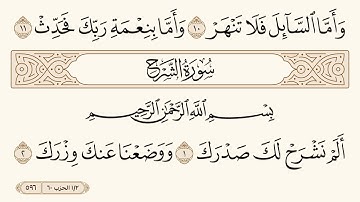 وَأَمَّا ٱلسَّآئِلَ فَلَا تَنۡهَرۡ ١٠ وَأَمَّا بِنِعۡمَةِ رَبِّكَ فَحَدِّثۡ ١١
سُورَةُ الشَّرۡحِ
بِسۡمِ ٱللَّهِ ٱلرَّحۡمَٰنِ ٱلرَّحِيمِ
أَلَمۡ نَشۡرَحۡ لَكَ صَدۡرَكَ ١ وَوَضَعۡنَا عَنكَ وِزۡرَكَ ٢
١/٢ الحزب ٦٠
٥٩٦